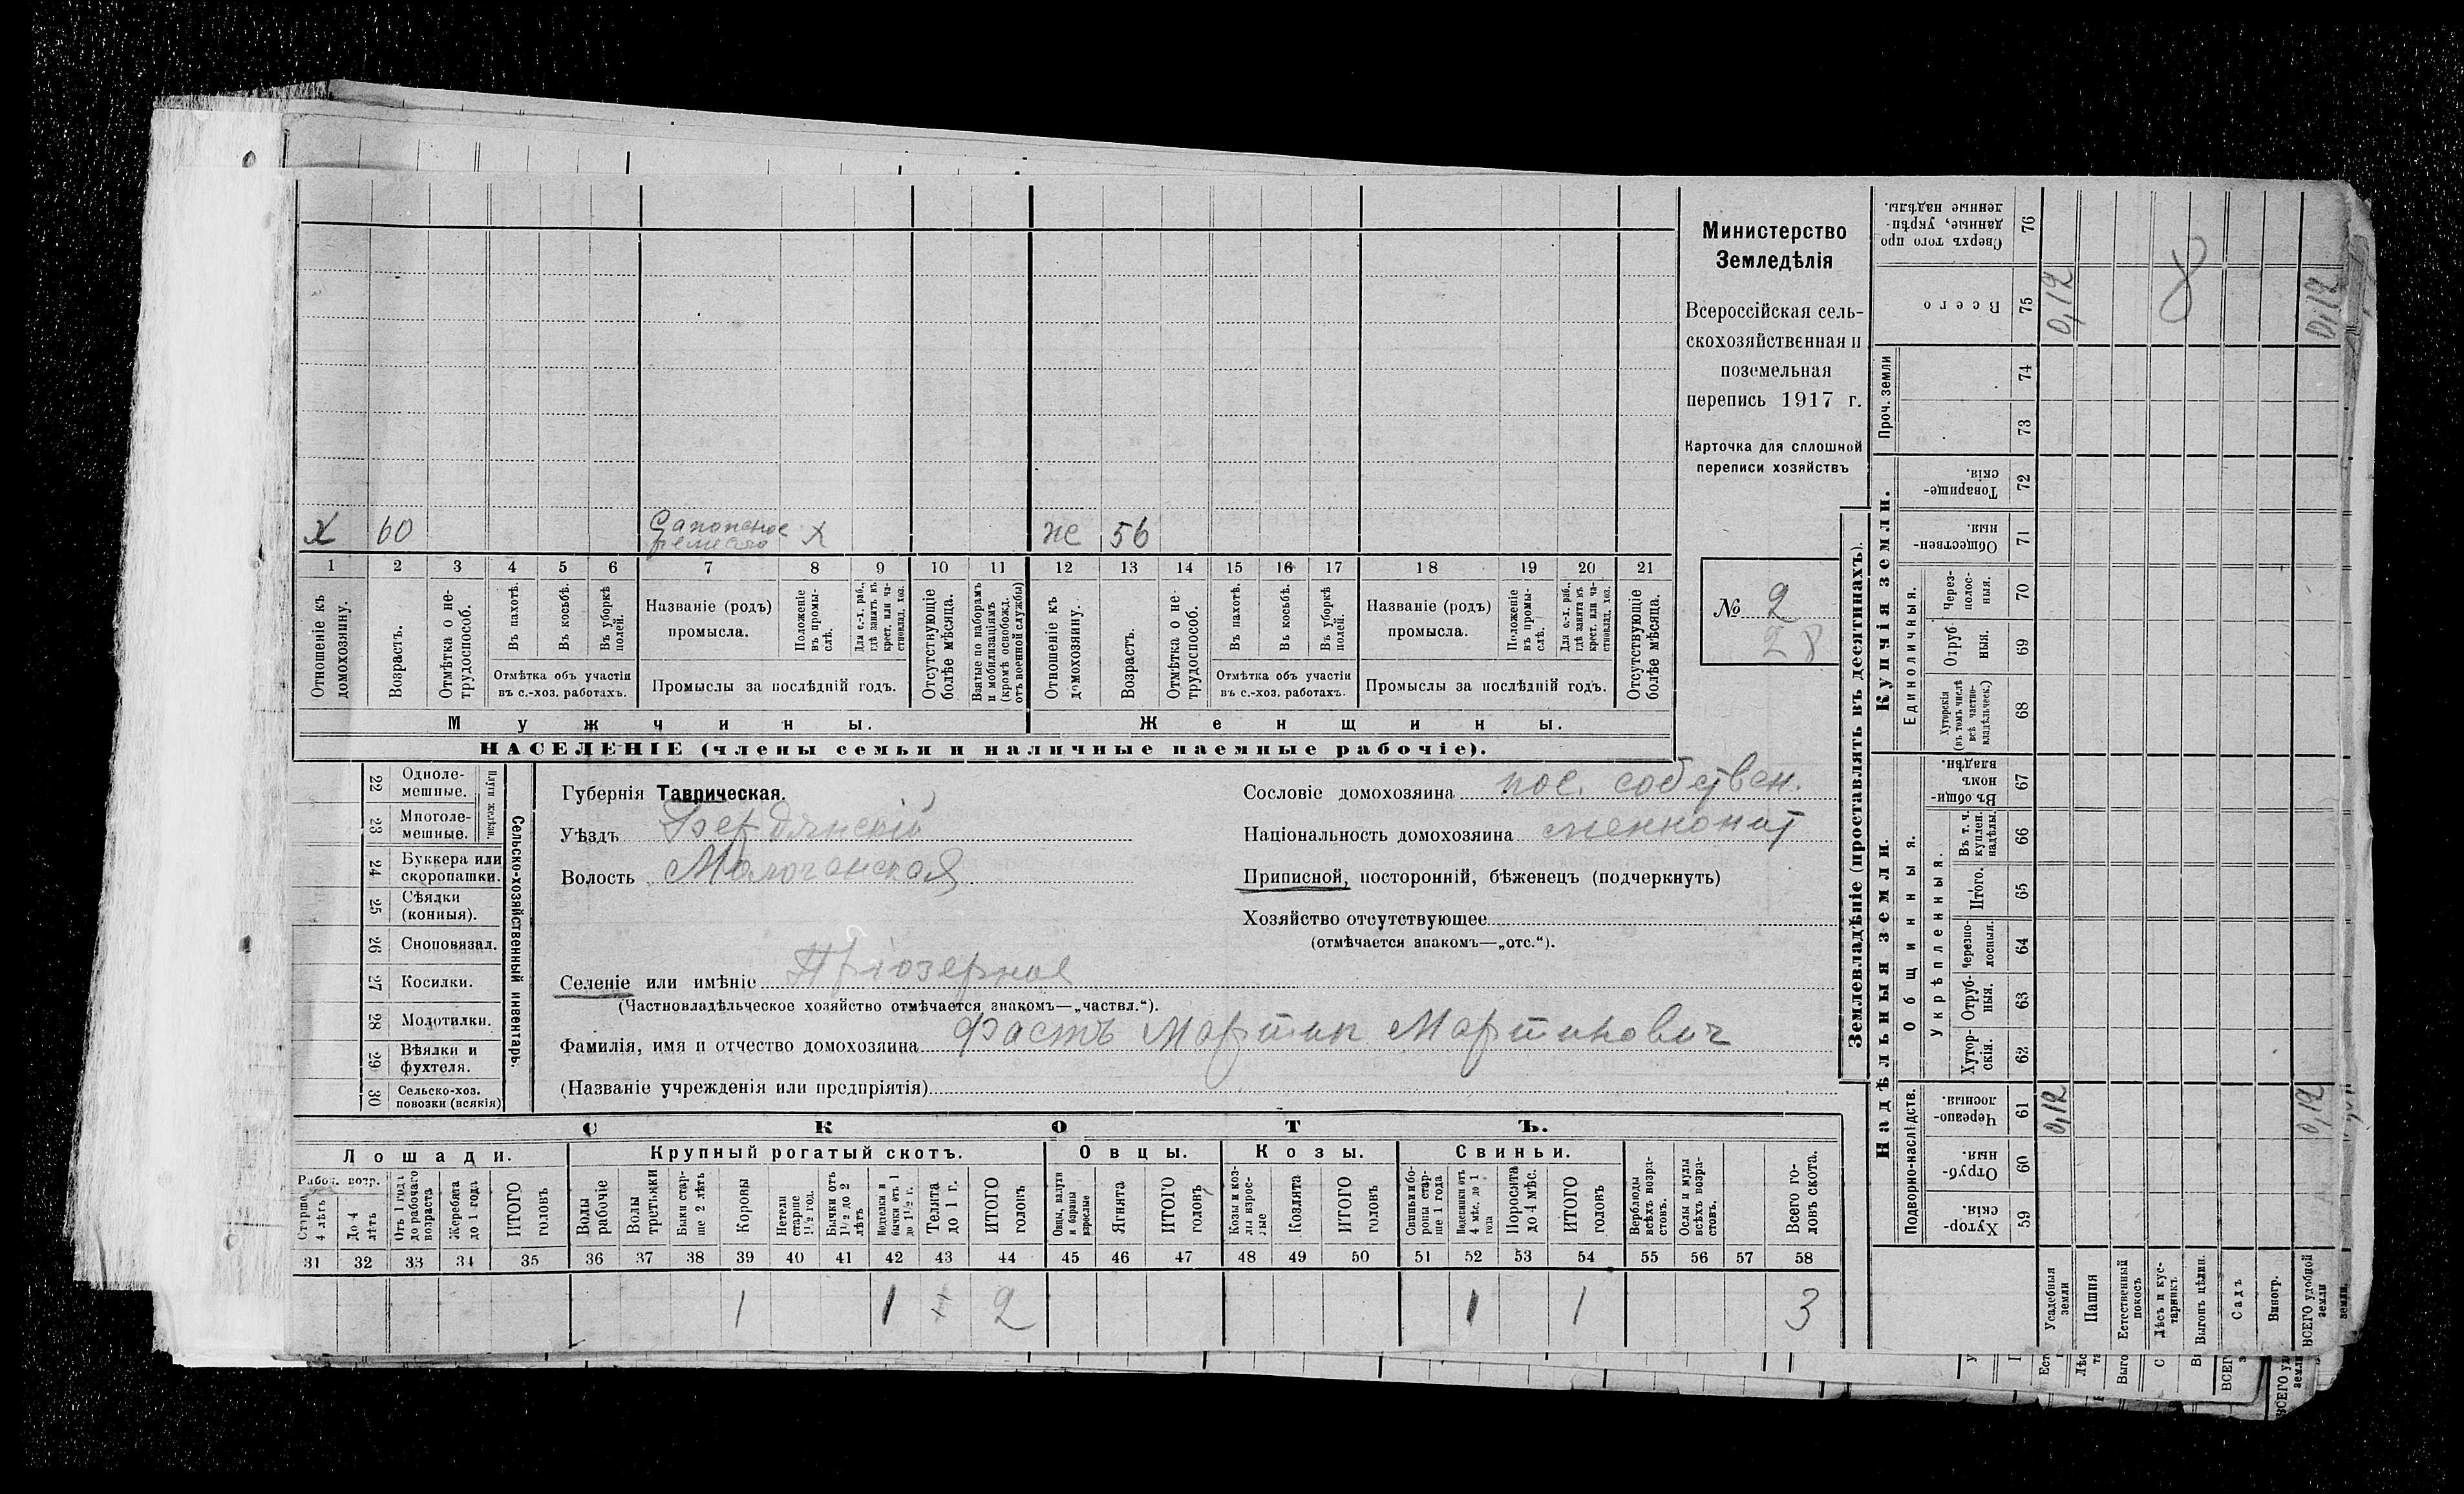 Министерство
Земледѣлія
Всероссійская сель-
скохозяйственная и
поземельная
перепись 1917 г.
Карточка для сплошной
переписи хозяйствъ
№ 2
28
х 60 Сапожное ремесло х же 56
1 2 3 4 5 6 7 8 9 10 11 12 13 14 15 16 17 18 19 20 21
Отношеніе къ домохозяину.
Возрастъ.
Отмѣтка о не-трудоспособ.
Въ пахотѣ.
Въ косьбѣ.
Въ уборкѣ полей.
Отмѣтка объ участіи въ с.-хоз. работахъ.
Названіе (родъ) промысла.
Положеніе въ промы-слѣ.
Для с.-х. раб., гдѣ занятъ въ крест. или ча-стновлад. хоз.
Промыслы за послѣдній годъ.
Отсутствующіе болѣе мѣсяца.
Взятые по наборамъ и мобилизаціямъ (кромѣ освобожд. отъ военной службы)
Отношеніе къ домохозяину.
Возрастъ.
Отмѣтка о не-трудоспособ.
Въ пахотѣ.
Въ косьбѣ.
Въ уборкѣ полей.
Отмѣтка объ участіи въ с.-хоз. работахъ.
Названіе (родъ) промысла.
Положеніе въ промы-слѣ.
Для с.-х. раб., гдѣ занята въ крест. или ча-стновлад. хоз.
Промыслы за послѣдній годъ.
Отсутствующіе болѣе мѣсяца.
Мужчины. Женщины.
НАСЕЛЕНІЕ (члены семьи и наличные наемные рабочіе).
22 Одноле-мешные.
23 Многоле-мешные.
Плуги желѣзн.
24 Буккера или скоропашки.
25 Сѣялки (конныя).
26 Сноповязал.
27 Косилки.
28 Молотилки.
29 Вѣялки и фухтеля.
30 Сельско-хоз. повозки (всякія)
Сельско-хозяйственный инвентарь.
Губернія Таврическая.
Уѣздъ Бердянскій
Волость Молочанская
Селеніе или имѣніе Пріозерное
(Частновладѣльческое хозяйство отмѣчается знакомъ—„частвл.“).
Фамилія, имя и отчество домохозяина Фастъ Мартин Мартинович
(Названіе учрежденія или предпріятія)
Сословіе домохозяина пос. собствен.
Національность домохозяина меннонит
Приписной, посторонній, бѣженецъ (подчеркнуть)
Хозяйство отсутствующее
(отмѣчается знакомъ—„отс.“).
СКОТЪ.
Лошади. Крупный рогатый скотъ. Овцы. Козы. Свиньи.
Рабоч. возр.
Старше 4 лѣтъ
До 4 лѣтъ
Отъ 1 года до рабочаго возраста
Жеребята до 1 года
ИТОГО головъ
Волы рабочіе
Волы третьяки
Быки стар-ше 2 лѣтъ
Коровы
Нетели старше 1½ год.
Бычки отъ 1½ до 2 лѣтъ
Нетелки и бычки отъ 1 до 1½ г.
Телята до 1 г.
ИТОГО головъ
Овцы, валухи и бараны взрослые
Ягнята
ИТОГО головъ
Козы и коз-лы взрос-лые
Козлята
ИТОГО головъ
Свиньи и бо-ровы стар-ше 1 года
Подсвинки отъ 4 мѣс. до 1 года
Поросята до 4 мѣс.
ИТОГО головъ
Верблюды всѣхъ возра-стовъ.
Ослы и мулы всѣхъ возра-стовъ.
Всего го-ловъ скота.
31 32 33 34 35 36 37 38 39 40 41 42 43 44 45 46 47 48 49 50 51 52 53 54 55 56 57 58
1 1 2 1 1 3
Землевладѣніе (проставлять въ десятинахъ).
Надѣльныя земли. Купчія земли. Проч. земли
Подворно-наслѣдств. Общинныя. Единоличныя.
Укрѣпленныя.
Хутор-скія. 59
Отруб-ныя. 60
Черезпо-лосныя. 61
Хутор-скія. 62
Отруб-ныя. 63
Черезпо-лосныя. 64
Итого. 65
Въ т. ч. куплен. надѣлы. 66
Въ общин-номъ владѣн. 67
Хуторскія (въ томъ числѣ всѣ частно-владѣльческ.) 68
Отруб-ныя. 69
Через-полос-ныя. 70
Обществен-ныя. 71
Товарище-скія. 72
73
74
Всего 75
Сверхъ того про-данные, укрѣп-ленные надѣлы. 76
Усадебныя земли 0,12 0,12
Пашня
Естественный покосъ
Лѣсъ и кус-тарникъ.
Выгонъ цѣлин.
Садъ
Виногр.
ВСЕГО удобной земли 0,12 0,12
8